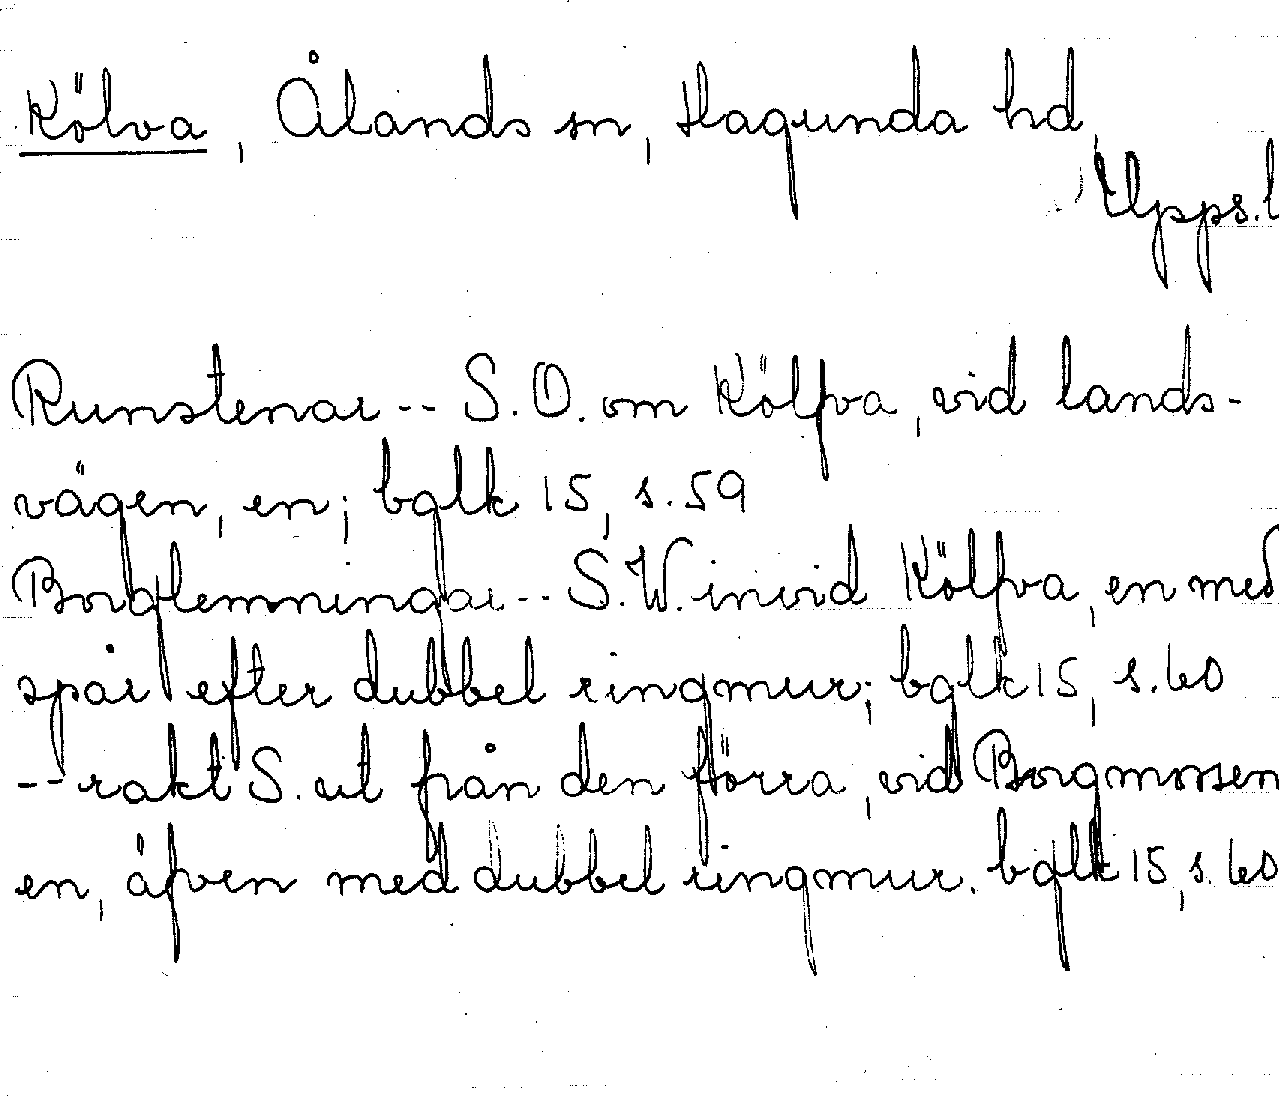 Kölva, Ålands sn, Hagunda hd,
Upps. l
Runstenar -- S.O. om Kölfva, vid lands-
vägen, en; bglk 15, s. 59
Borglemningar -- S.W. invid Kölfva, en med
spår efter dubbel ringmur; bglk 15, s. 60
-- rakt S. ut från den förra, vid Borgmossen
en, äfven med dubbel ringmur. bglk 15, s. 60